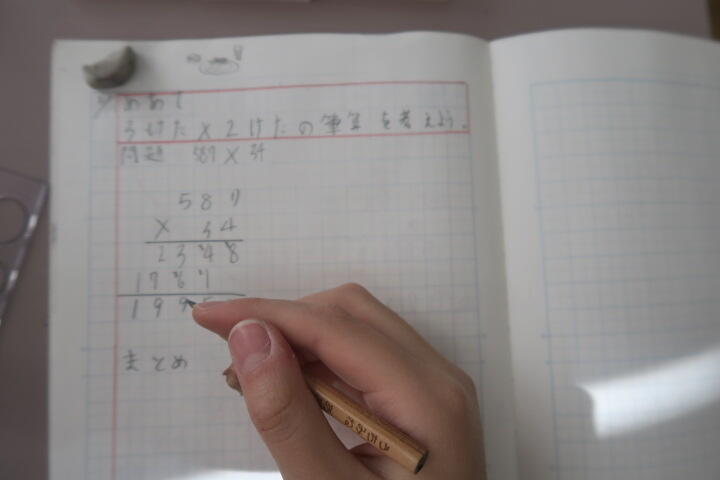 めあて
3けた×2けたの筆算を考えよう。
問題 587×34
587
× 34
2348
1761
199
まとめ